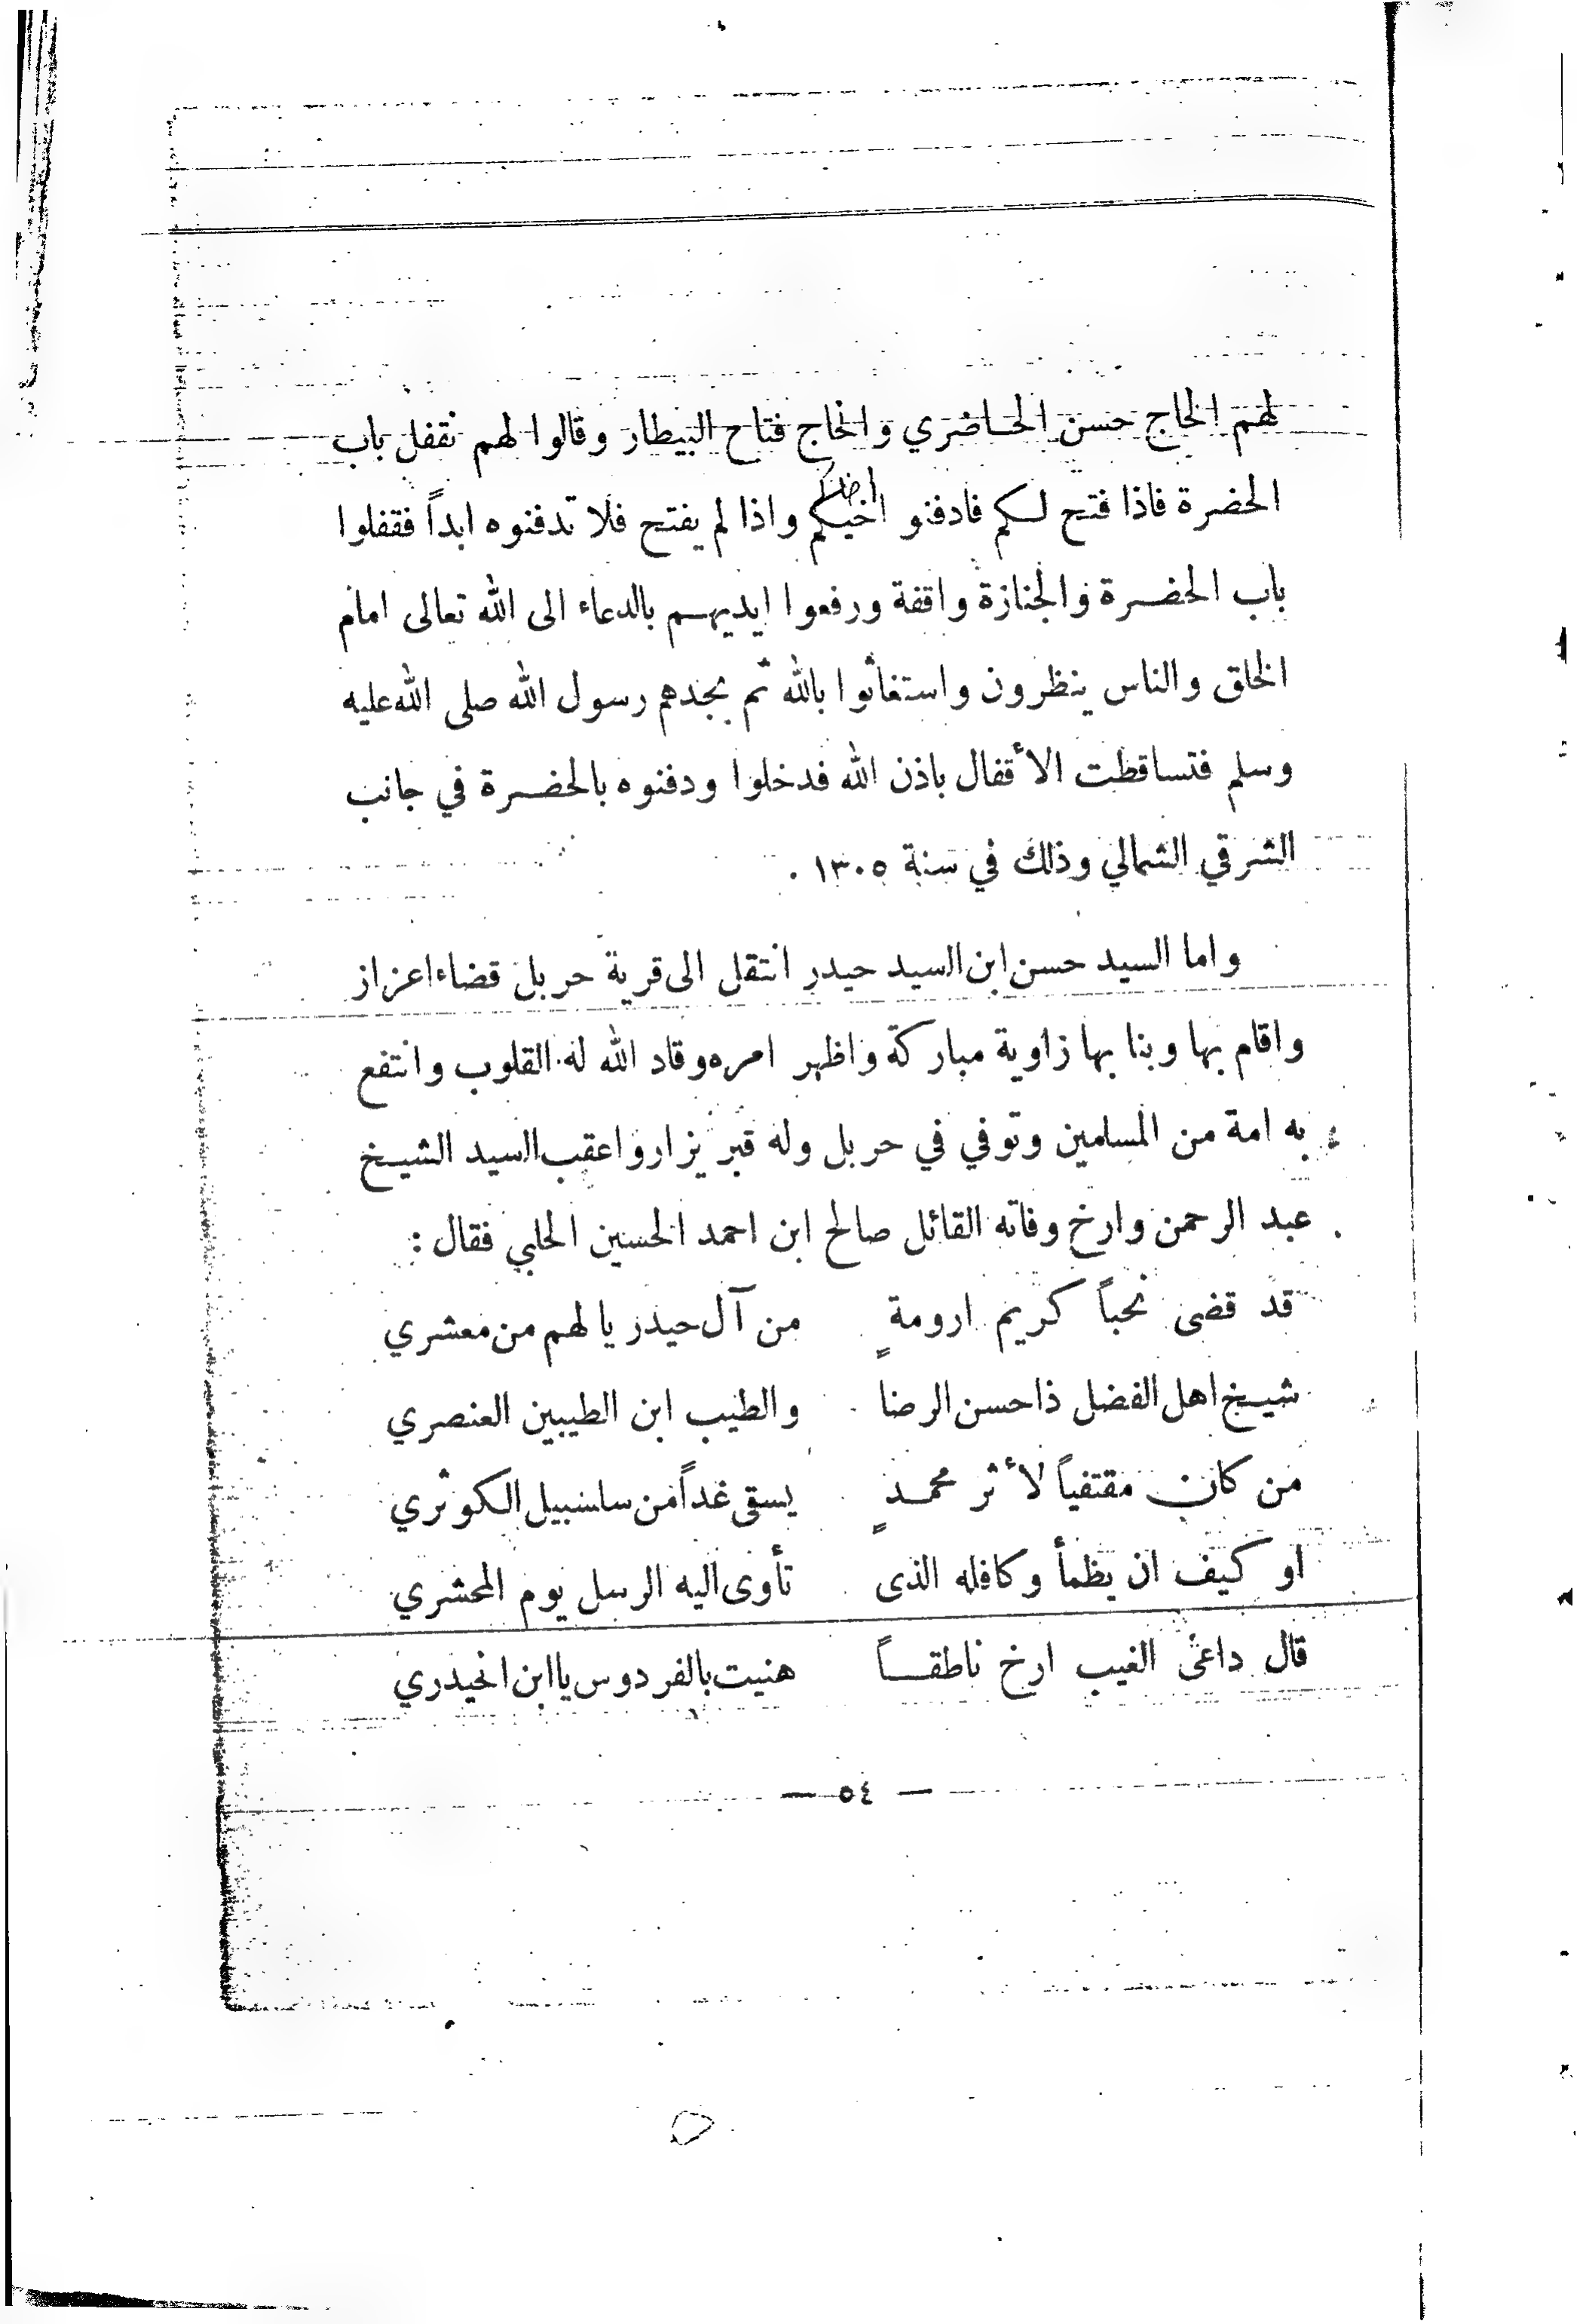 لهم الحاج حسن الحاضري والحاج فتاح البيطار وقالوا لهم نقفل باب
الحضرة فاذا فتح لكم فادفنو اخيكم واذا لم يفتح فلا تدفنوه ابداً فقفلوا
باب الحضرة والجنازة واقفة ورفعوا ايديهم بالدعاء الى الله تعالى امام
الخلق والناس ينظرون واستغاثوا بالله ثم بجدهم رسول الله صلى الله عليه
وسلم فتساقطت الأقفال باذن الله فدخلوا ودفنوه بالحضرة في جانب
الشرقي الشمالي وذلك في سنة ١٣٠٥ .
واما السيد حسن ابن السيد حيدر انتقل الى قرية حربل قضاء اعزاز
واقام بها وبنا بها زاوية مباركة واظهر امره وقاد الله له القلوب وانتفع
به امة من المسلمين وتوفي في حربل وله قبر يزار واعقب السيد الشيخ
عبد الرحمن وارخ وفاته القائل صالح ابن احمد الحسين الحلبي فقال :
قد قضى نحباً كريم ارومةٍ من آل حيدر يا لهم من معشري
شيخ اهل الفضل ذا حسن الرضا والطيب ابن الطيبين العنصري
من كان مقتفياً لأثر محمدٍ يسقى غداً من سلسبيل الكوثري
او كيف ان يظمأ وكافله الذى تأوى اليه الرسل يوم المحشري
قال داعى الغيب ارخ ناطقاً هنيت بالفردوس يا ابن الحيدري
— ٥٤ —